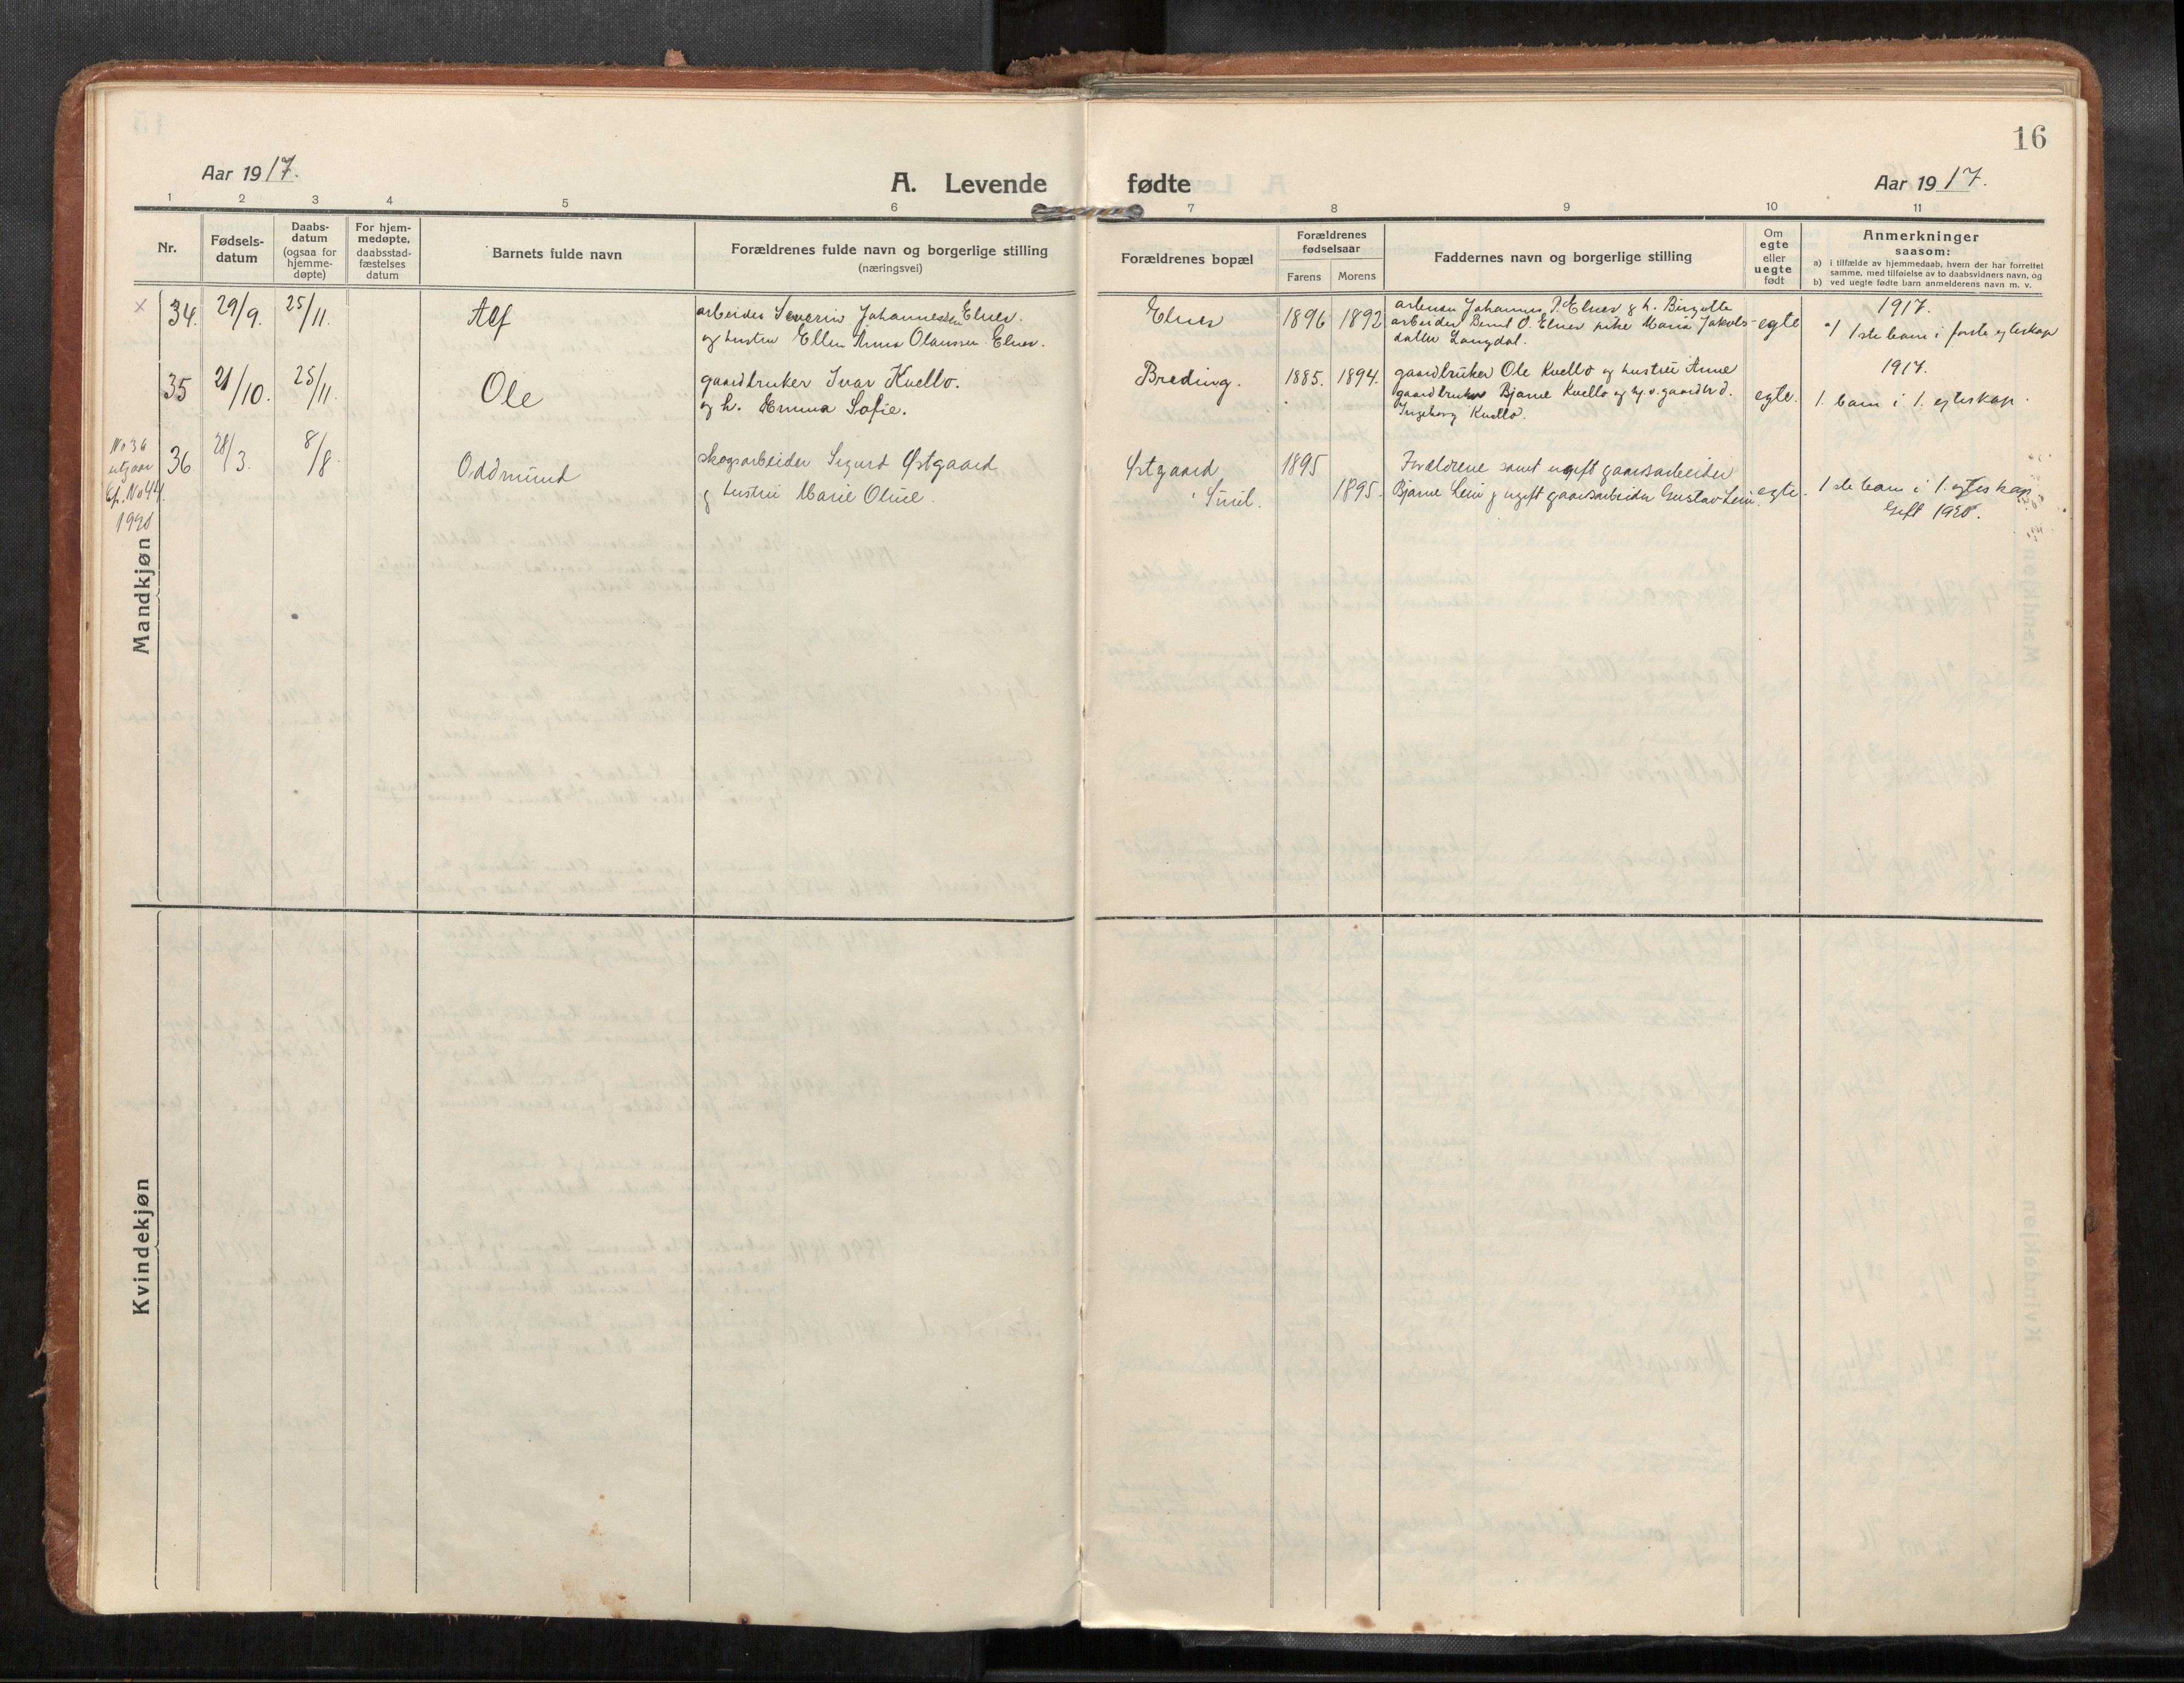 16
Aar 1917.
A. Levende fødte
Aar 1917.
1 2 3 4 5 6 7 8 9 10 11
Nr.
Fødsels-
datum
Daabs-
datum
(ogsaa for
hjemme-
døpte)
For hjem-
medøpte,
daabsstad-
fæstelses
datum
Barnets fulde navn
Forældrenes fulde navn og borgerlige stilling
(næringsvei)
Forældrenes bopæl
Forældrenes
fødselsaar
Farens Morens
Faddernes navn og borgerlige stilling
Om
egte
eller
uegte
født
Anmerkninger
saasom:
a) i tilfælde av hjemmedaab, hvem der har forrettet
samme, med tilføielse av to daabsvidners navn, og
b) ved uegte fødte barn anmelderens navn m. v.
Mandkjøn
x 34. 29/9. 25/11. Alf
arbeider Severin Johannessen Elnes.
og hustru Ellen Anna Olaussen Elnes.
Elnes 1896 1892
arbeider Johannes P. Elnes & h. Birgitte
arbeider Bernt O. Elnes pike Maria Jakobs-
datter Langdal.
egte
1917.
a) 1ste barn i første egteskap
35 21/10. 25/11. Ole
gaardbruker Ivar Kvello.
og h. Emma Sofie.
Breding. 1885. 1894.
gaardbruker Ole Kvello og hustru Anne
gaardbruker Bjarne Kvello og
Ingeborg Kvello.
egte.
1917.
1. barn i 1. egteskap.
No 36
utgaar
No 44
36 28/3. 8/8. Oddmund
skogsarbeider Sigurd Østgaard
og hustru Marie Oline.
Østgaard
1895 1895.
Forældrene samt ugift gaardsarbeider
Bjarne Lein og ugift gaardsarbeider Gustav Lein.
egte.
1ste barn i 1. egteskap
Gift
Kvindekjøn